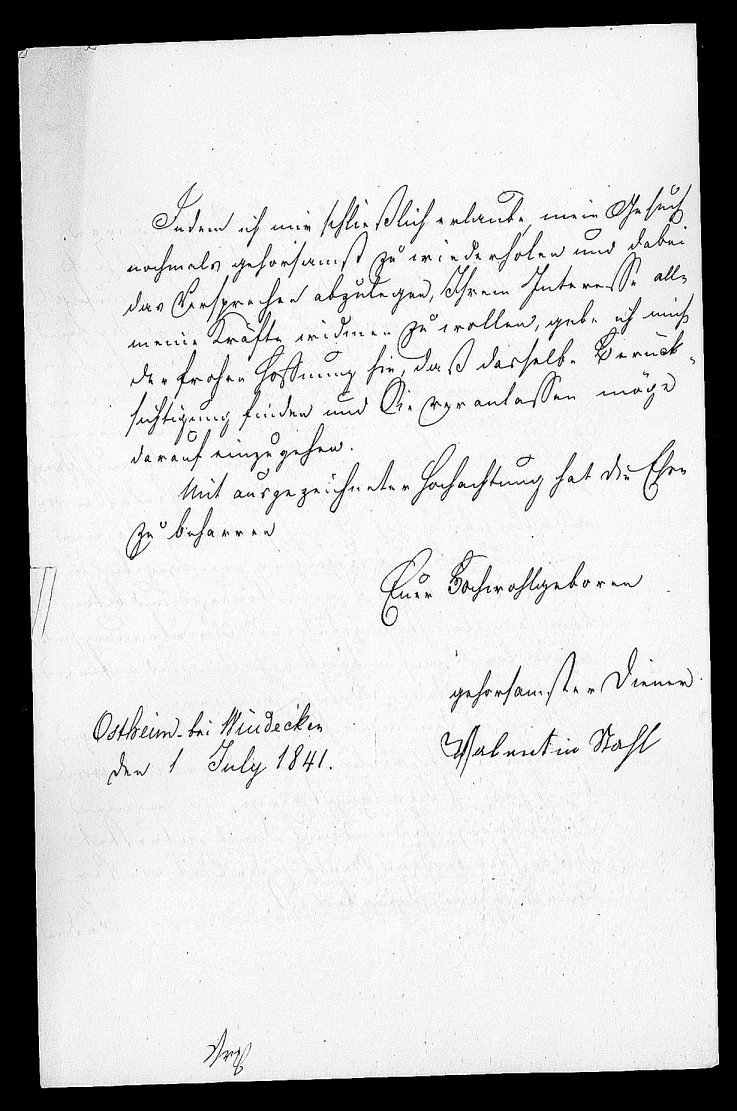 Indem ich mir schließlich erlaube, mein Gesuch
nochmals gehorsamst zu wiederholen und dabei
das Versprechen abzulegen, Ihrem Interesse alle
meine Kräfte widmen zu wollen, gebe ich mich
der frohen Hoffnung hin, daß dasselbe Berück-
sichtigung finden und Sie veranlassen möge
darauf einzugehen.
Mit ausgezeichneter Hochachtung hat die Ehre
zu beharren
Euer Hochwohlgeboren
gehorsamster Diener
Valentin Stahl
Ostheim bei Windecken
den 1 July 1841.